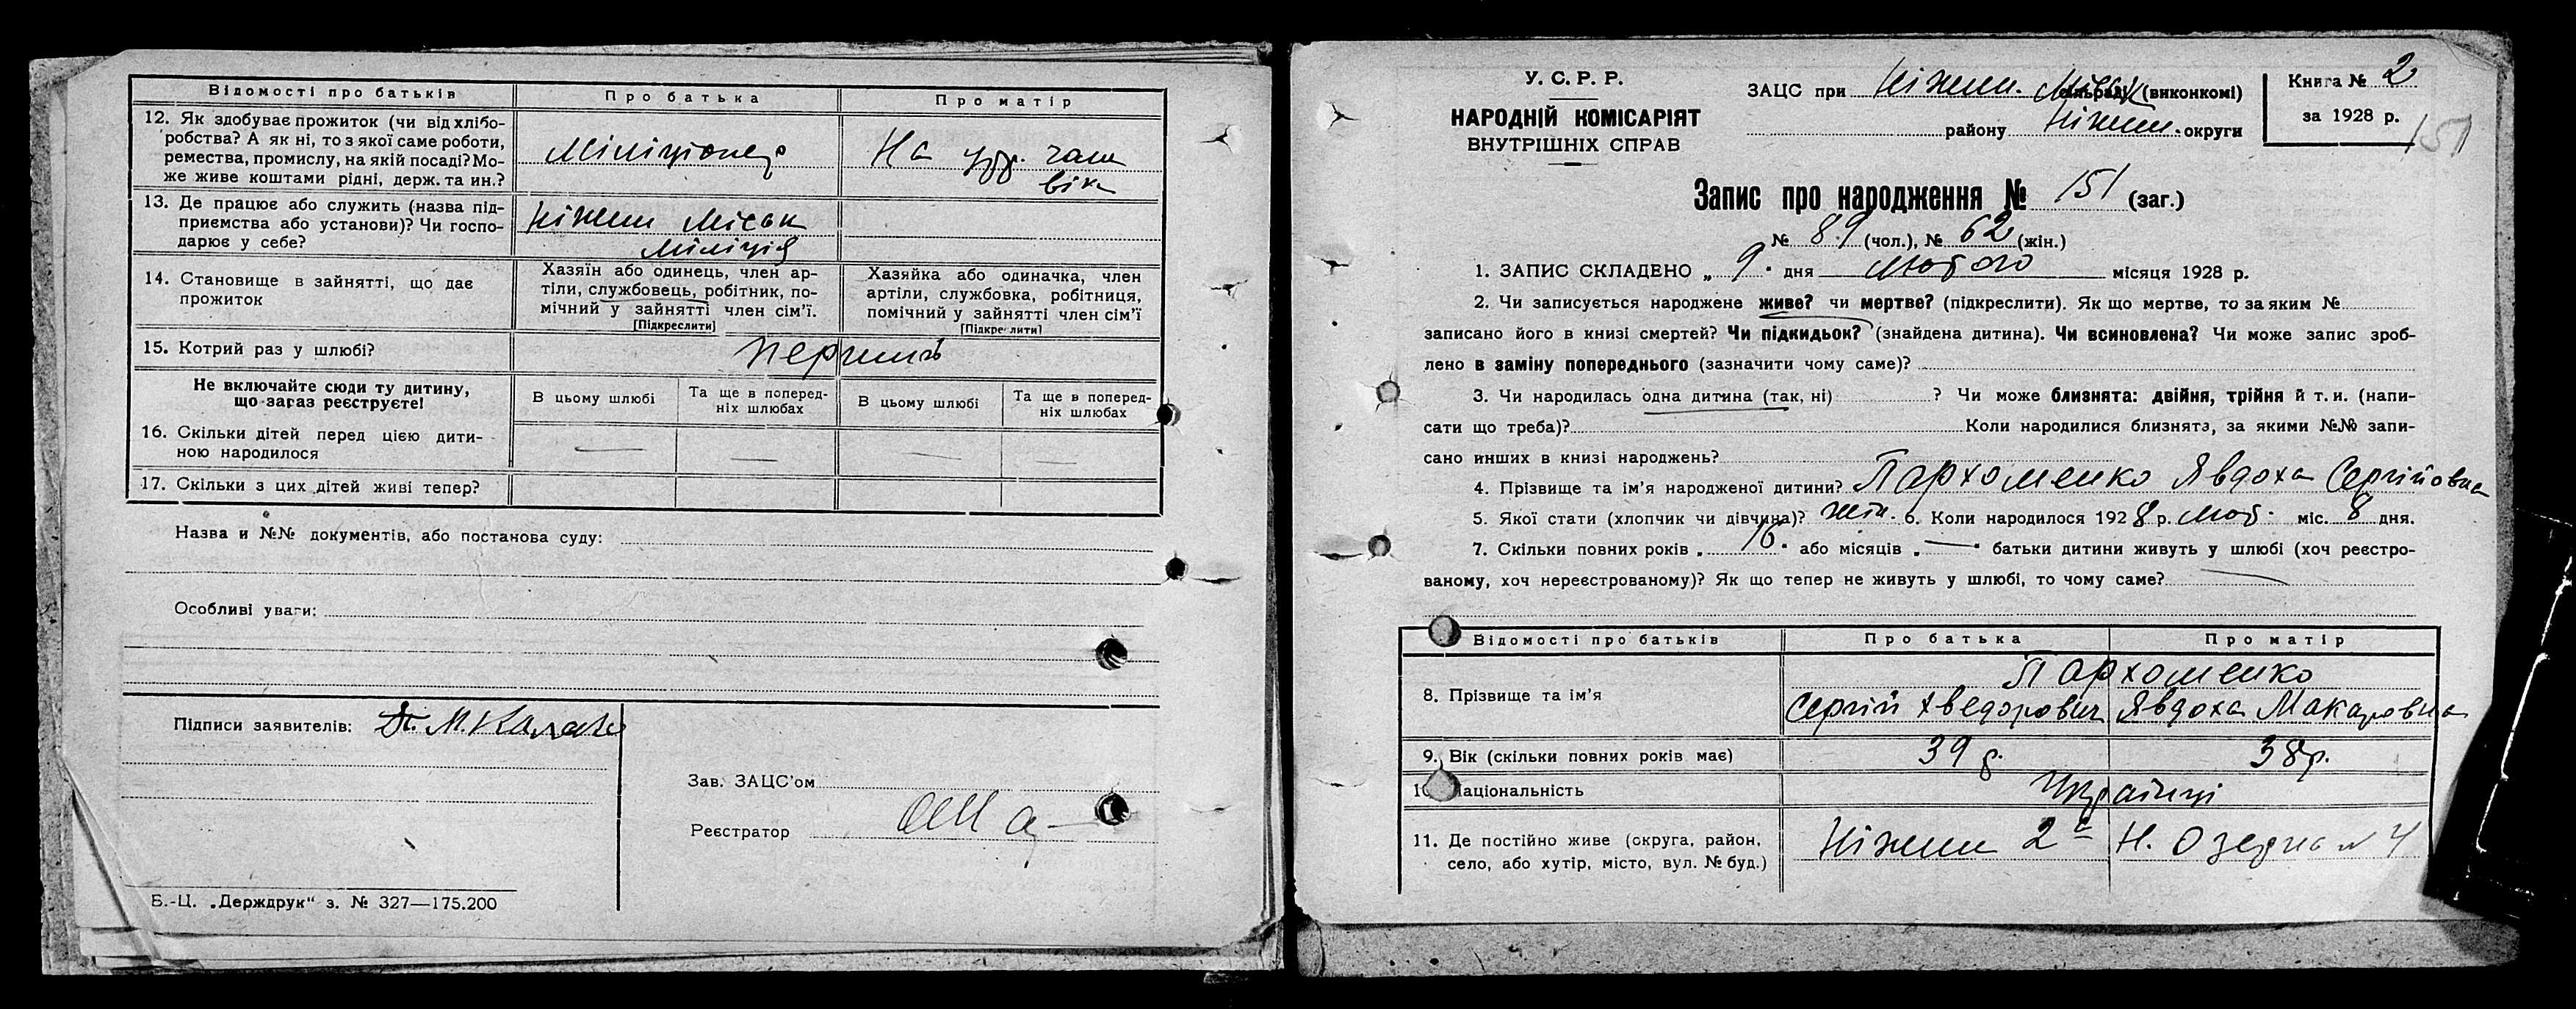 Відомості про батьків
Про батька
Про матір
12. Як здобуває прожиток (чи від хлібо-
робства? А як ні, то з якої саме роботи,
ремества, промислу, на якій посаді? Мо-
же живе коштами рідні, держ. та ин.?
Міліціонер
На утр. чоло
віка
13. Де працює або служить (назва під-
приємства або установи)? Чи госпо-
дарює у себе?
Ніжин Міськ
Міліція
14. Становище в зайнятті, що дає
прожиток
Хазяїн або одинець, член ар-
тіли, службовець, робітник, по-
мічний у зайнятті член сім'ї.
[Підкреслити]
Хазяйка або одиначка, член
артіли, службовка, робітниця,
помічний у зайнятті член сім'ї
[Підкреслити]
15. Котрий раз у шлюбі?
Не включайте сюди ту дитину,
що зараз реєструєте!
В цьому шлюбі
Та ще в поперед-
ніх шлюбах
В цьому шлюбі
Та ще в поперед-
ніх шлюбах
16. Скільки дітей перед цією дити-
ною народилося
— — — —
17. Скільки з цих дітей живі тепер?
Назва и №№ документів, або постанова суду:
Особливі уваги:
Підписи заявителів:
Зав. ЗАЦС'ом
Реєстратор
Б.-Ц. „Держдрук“ з. № 327—175.200
У. С. Р. Р.
НАРОДНІЙ КОМІСАРІЯТ
ВНУТРІШНІХ СПРАВ
ЗАЦС при Ніжин. (виконкомі)
району Ніжин. округи
Книга № 2
за 1928 р.
151
Запис про народження № 151 (заг.)
№ 89 (чол.), № 62 (жін.)
1. ЗАПИС СКЛАДЕНО „ 9 " дня Лютого місяця 1928 р.
2. Чи записується народжене живе? чи мертве? (підкреслити). Як що мертве, то за яким №
записано його в книзі смертей? Чи підкидьок? (знайдена дитина). Чи всиновлена? Чи може запис зроб-
лено в заміну попереднього (зазначити чому саме)?
3. Чи народилась одна дитина (так, ні) ? Чи може близнята: двійня, трійня й т. и. (напи-
сати що треба)? Коли народилися близнята, за якими №№ запи-
сано инших в книзі народжень?
4. Прізвище та ім'я народженої дитини? Пархоменко Явдоха Сергійовна
5. Якої стати (хлопчик чи дівчина)? жін. 6. Коли народилося 1928 р. лют. міс. 8 дня.
7. Скільки повних років „ 16 " або місяців „ — " батьки дитини живуть у шлюбі (хоч реєстро-
ваному, хоч нереєстрованому)? Як що тепер не живуть у шлюбі, то чому саме?
Відомості про батьків
Про батька
Про матір
8. Прізвище та ім'я
Пархоменко
Сергій Хведорович
Явдоха Макаровна
9. Вік (скільки повних років має)
39 р.
38 р.
10. Національність
Українці
11. Де постійно живе (округа, район,
село, або хутір, місто, вул. № буд.)
Ніжин 2 Н. Озерна № 4